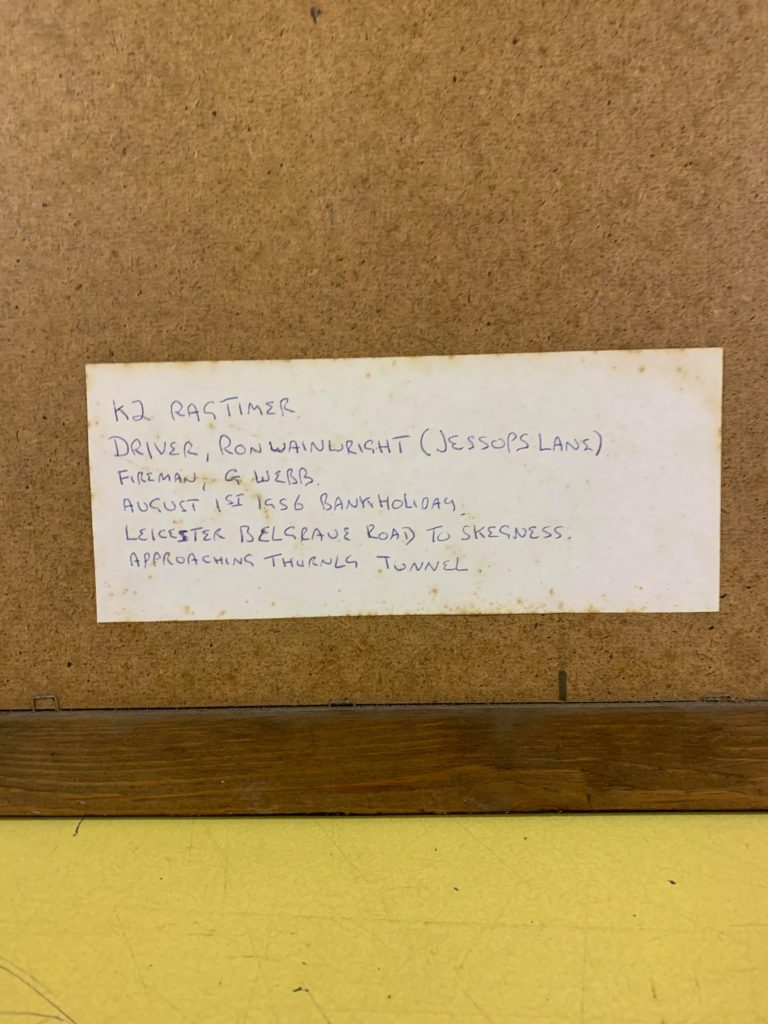 K2 RAGTIMER.
DRIVER, RON WAINWRIGHT (JESSOPS LANE)
FIREMAN, G WEBB.
AUGUST 1ST 1956 BANK HOLIDAY.
LEICESTER BELGRAVE ROAD TO SKEGNESS.
APPROACHING THURNLG TUNNEL.